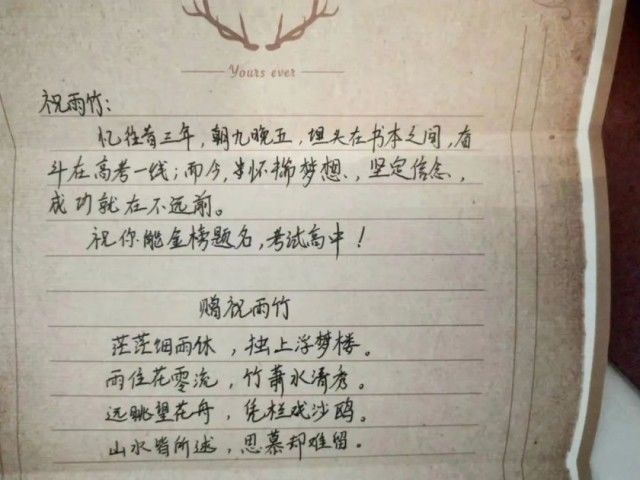 Yours ever
祝雨竹：
忆往昔三年，朝九晚五，埋头在书本之间，奋
斗在高考一线；而今，当怀揣梦想，坚定信念，
成功就在不远前。
祝你能金榜题名，考试高中！
赠祝雨竹
茫茫烟雨休，独上浮梦楼。
雨住花零流，竹萧水清秀。
远眺望花舟，凭栏戏沙鸥。
山水皆所述，思慕却难留。